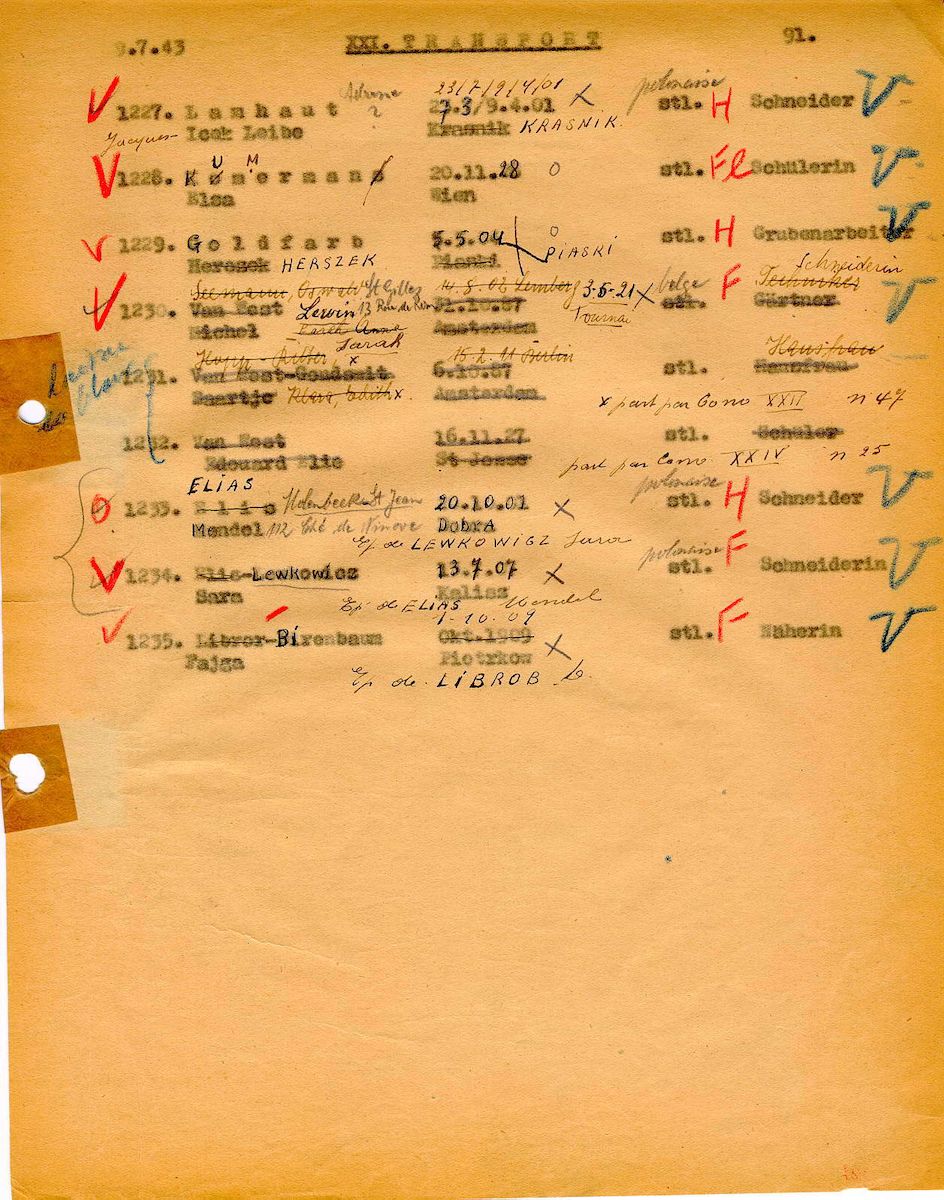 9.7.43 XXI. TRANSPORT 91.
Adresse 23/7/9/4/01 polonaise
1227. Lanhaut ? 23.3/9.4.01 X stl. H Schneider V
Jacques Icek Leibe Krasnik KRASNIK.
U M
1228. Kömermans 20.11.28 O stl. Fl Schülerin V
Elsa Wien
1229. Goldfarb 5.5.04 O stl. H Grubenarbeiter V
Herszek HERSZEK Piaski PIASKI
Schneiderin
Seemann, Oswald St Gilles 14.8.08 Lemberg 3-5-21 X belge F Techniker
1230. Van Eest Lewin 13 Rue de Rome 31.10.87 stl. Gärtner V
Michel Anna Amsterdam Tournai
Sarah
15.2.11 Berlin Hausfrau
1231. Van Eest-Goudsmit 6.10.87 stl. Hausfrau
Saartje Klara, Edith x Amsterdam x part par Conv XXII n 47
1232. Van Eest 16.11.27 stl. Schüler
Edouard Elie St Josse part par Conv XXIV n 25
ELIAS polonaise
1233. Elis Molenbeek St Jean 20.10.01 X stl. H Schneider V
Mendel 112 Ché de Ninove Dobra
Ep de LEWKOWICZ Sara
polonaise F
1234. Elis-Lewkowicz 13.7.07 X stl. Schneiderin V
Sara Kalisz
Ep de ELIAS Mendel
1-10-09
1235. Libror-Birenbaum Okt.1909 X stl. F Näherin V
Fajga Piotrkow
Ep de LIBROB